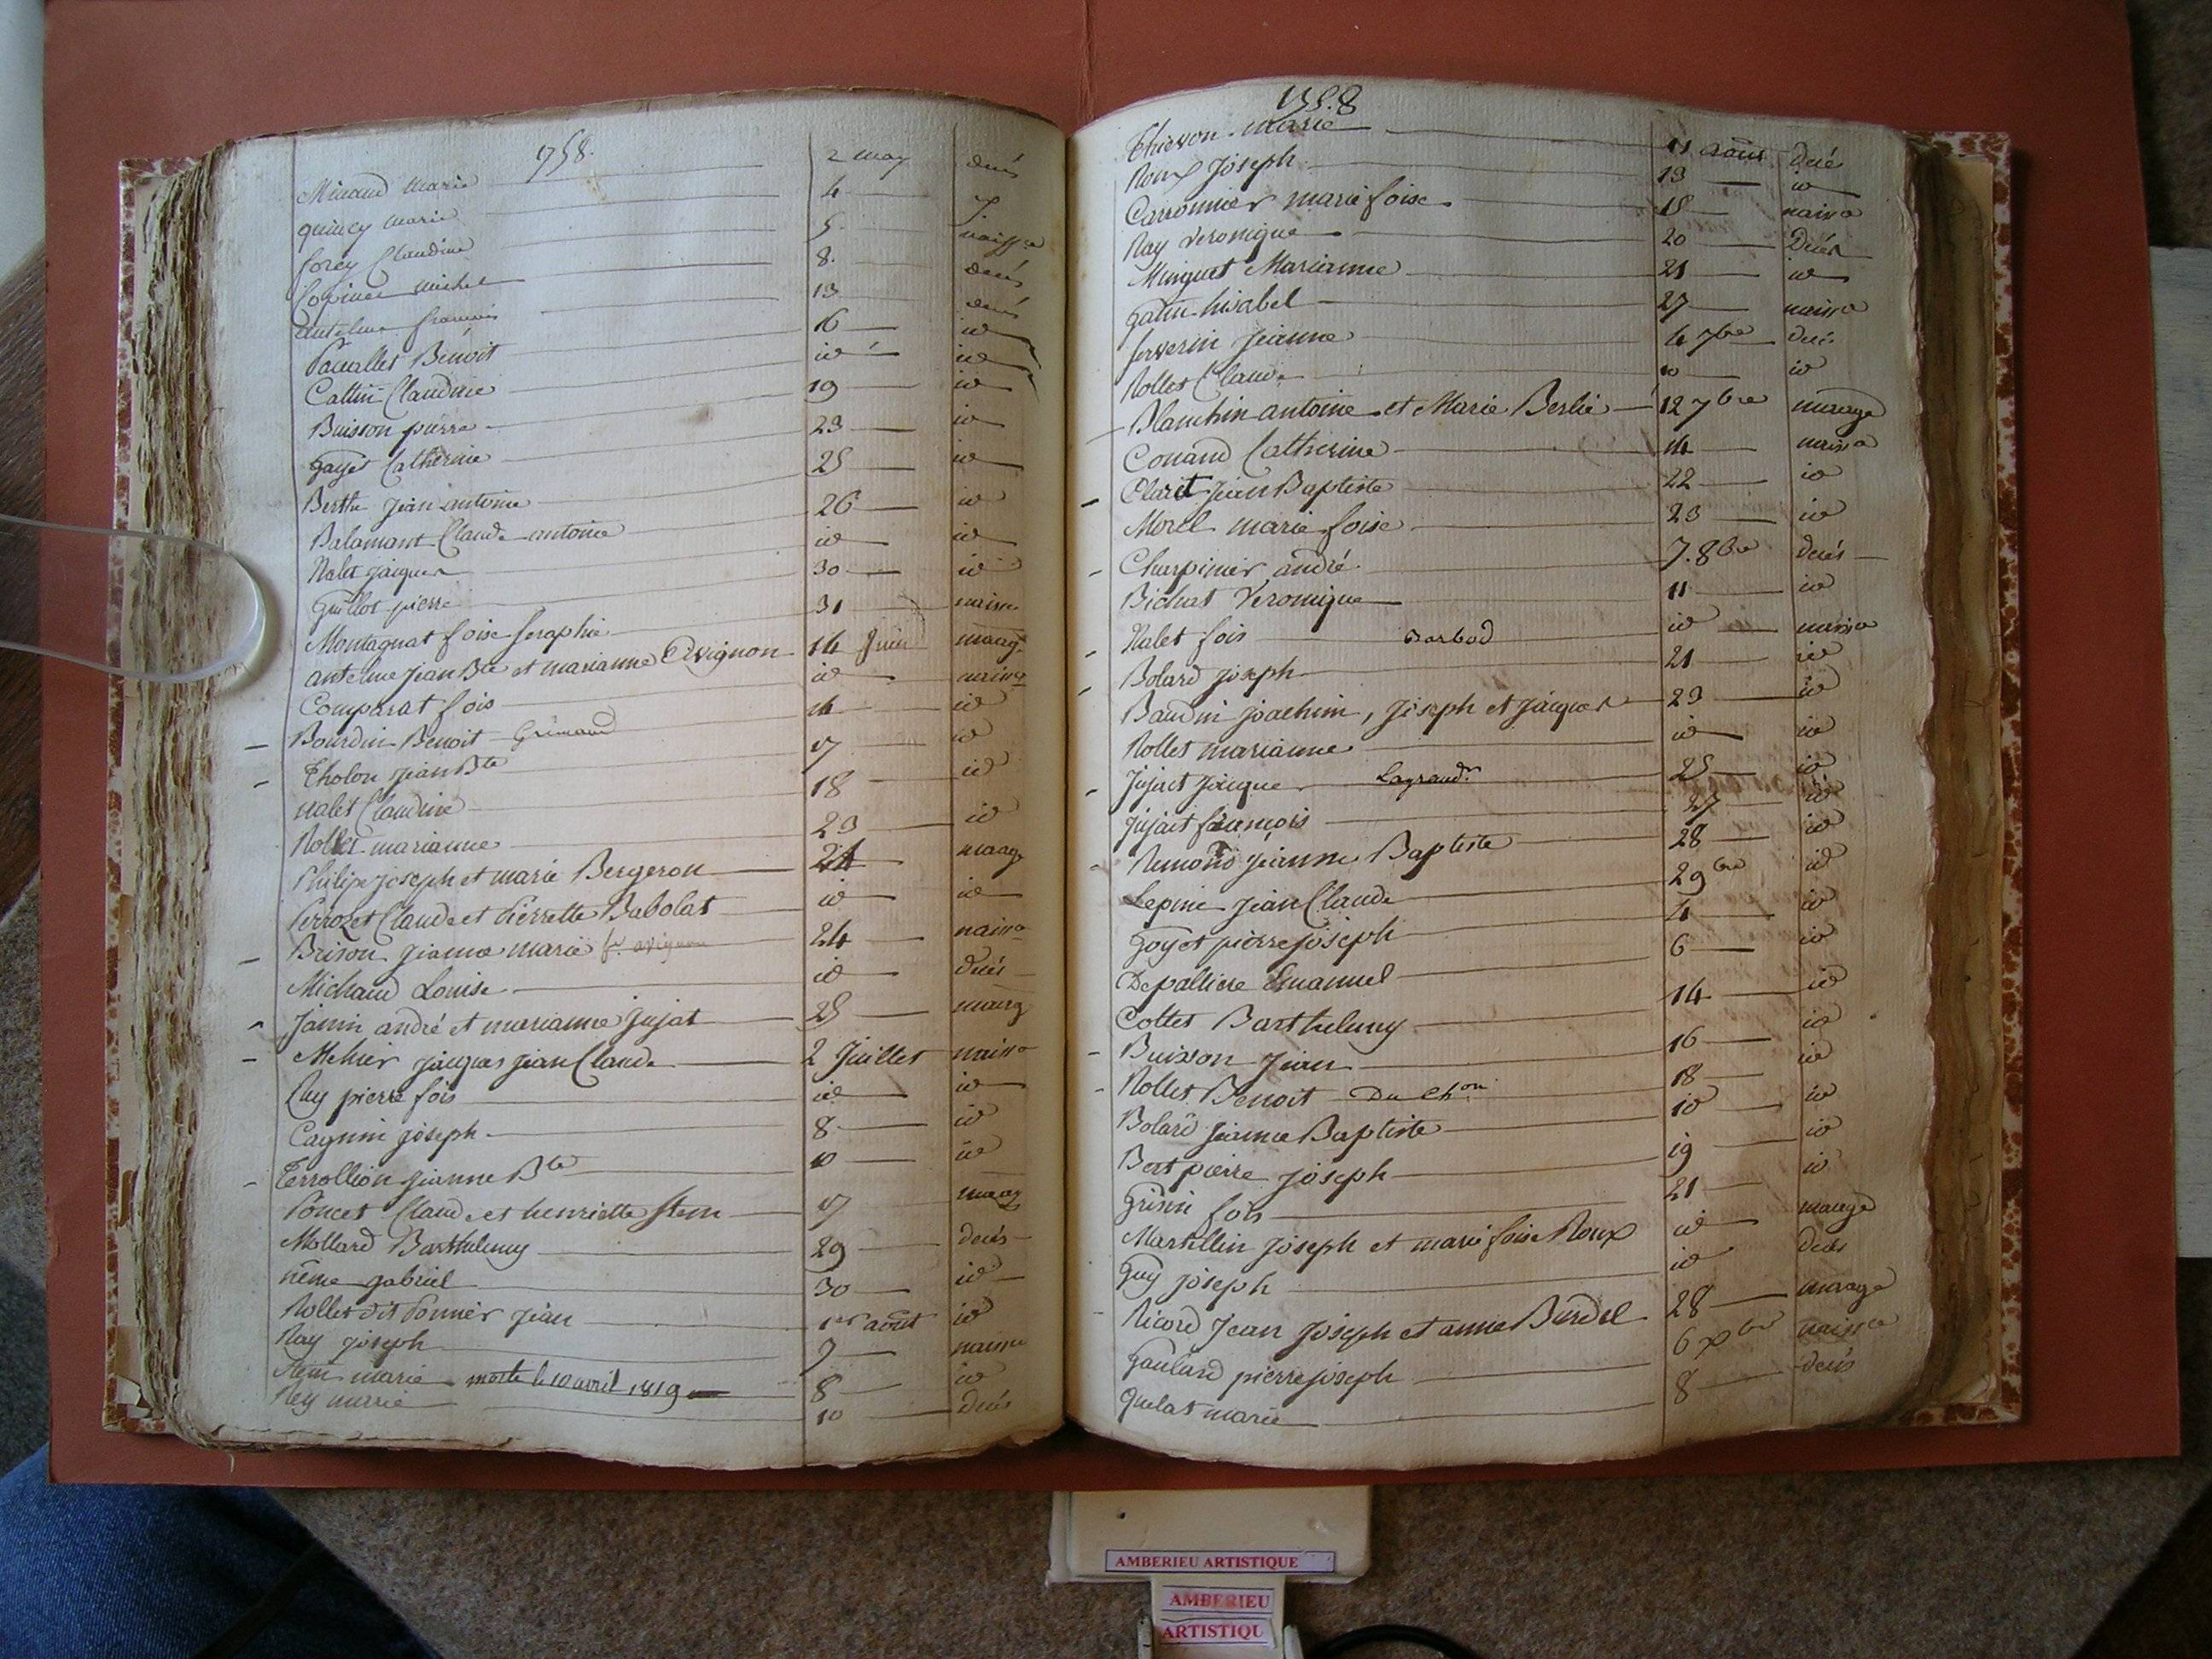 1758.
Minaud marie 2 may décés
quincy marie 4
forey Claudine 5. naissce
michel 8. décés
antelme francois 13 décés
Benoit 16 id
Cattin Claudine id id
Buisson pierre 19 id
goyet Catherine 23 id
Berthe jean antoine 25 id
Balamant Claude antoine 26 id
Nalet jacques id id
Guillot pierre 30 id
Montagnat foise seraphie 31 naissce
antelme jean Bte et marianne Avignon 14 juin mariag.
Comparat fois id naissa
Bourdin Benoit Grimaud 14 id
Tholon jean Bte 17 id
nalet Claudine 18 id
Rollet marianne 23 id
Philipe joseph et marie Bergeron 24 mariag
Perrozet Claude et Pierrette Babolat id id
Brison jeanne marie 24 naissa
Michaud Louise id décés
Janin andré et marianne Jujat 25 mariag
Mehier jacques jean Claude 2 Juillet naissa
Ray pierre fois id id
Cagnin joseph 8 id
Terrollion jeanne Bte 10 id
Poncet Claude et henriette Stem 17 mariag
Mollard Barthelemy 29 décés
même gabriel 30 id
Rollet dit Bonnier jean 1er août id
Ray joseph 7 naissce
marie morte le 10 avril 1819 8 id
Rey marie 10 décés
1758
Thievon marie 11 août décé
Roux joseph 13 id
Carronnier marie foise 15 naissa
Ray Veronique 20 Décés
Minguet Marianne 21 id
gatin hisabel 27 naissa
ferverin jeanne 4 7bre décé.
Rollet Claude 10 id
Blanchin antoine et Marie Berlie 12 7bre mariage
Conand Catherine 14 naissa
Claret jean Baptiste 22 id
Morel marie foise 23 id
Charpinier andré 7. 8bre décés
Bichat Veronique 11 id
Nalet fois Barbod id naissa
Bolard joseph 21 id
Baudin joachim, joseph et jacques 23 id
Rollet marianne id id
Jujat jacque Lagrand 25 id
Jujat francois 27 id
Remond jeanne Baptiste 28 id
Lepine jean Claude 2 9bre id
goyet pierre joseph 4 id
Depalliere Emanuel 6 id
Cottet Barthelemy 14 id
Buisson jean 16 id
Rollet Benoit Du Chon 18 id
Bolard jeanne Baptiste id id
Bert pierre joseph 19 id
Grisin fois 21 id
Martellin joseph et marie foise Roux id mariage
Guy joseph id décés
Ricord Jean joseph et anne Berdel 28 mariage
Goulard pierre joseph 6 xbre naissce
Quelat marie 8 décés
AMBERIEU ARTISTIQUE
AMBERIEU
ARTISTIQU